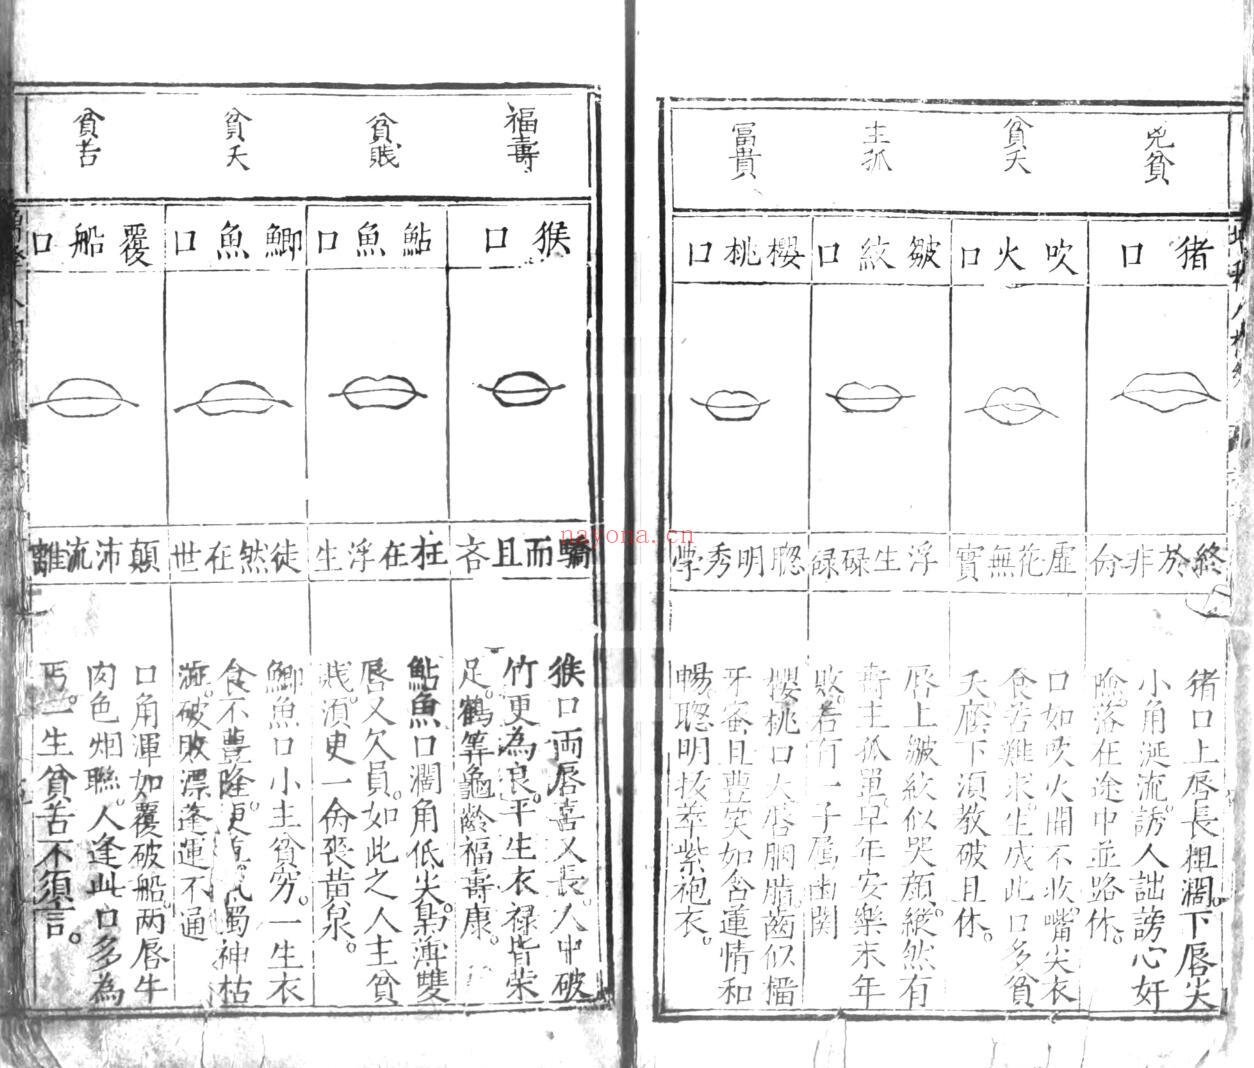 凶貧
猪口
終於非命
猪口上唇長粗濶。下唇尖
小角涎流。誘人訕謗心奸
險。落在途中並路休。
貧夭
吹火口
虛花無實
口如吹火開不收嘴尖衣
食苦難求。生成此口多貧
夭。底下須教破且休。
主孤
皺紋口
浮生碌碌
唇上皺紋似哭顔縱然有
壽主孤單。早年安樂末年
敗。若有一子屬幽関
冨貴
櫻桃口
聰明秀學
櫻桃口大唇胭脂。齒似榴
牙宻且豊笑如含蓮情和
暢。聰明抜萃紫袍衣。
福壽
猴口
驕而且吝
猴口両唇喜又長。人中破
竹更為良。平生衣禄皆荣
足。鶴筭龜齡福壽康。
貧賎
鮎魚口
枉在浮生
鮎魚口濶角低尖。梟薄雙
唇又欠員。如此之人主貧
賎。須臾一命丧黄泉。
貧夭
鯽魚口
徒然在世
鯽魚口小主貧窮。一生衣
食不豊隆。更。濁神枯
破敗漂蓬運不通
貧苦
覆船口
顛沛流離
口角渾如覆破船。两唇牛
肉色烟聮。人逢此口多為
丐。一生貧苦不須言。
navona.cn